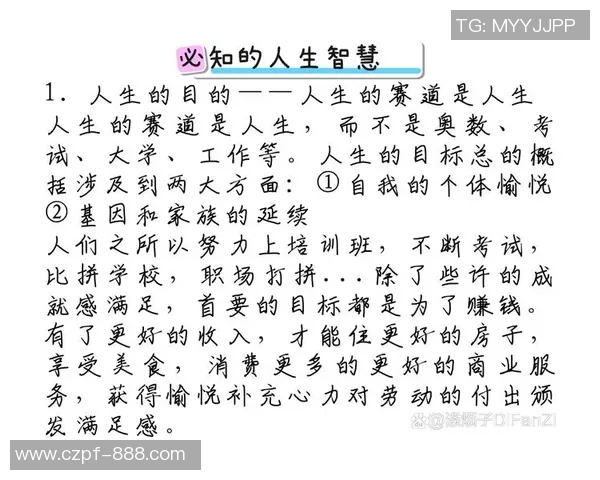 TG: MYYJJPP
必知的人生智慧
1. 人生的目的——人生的赛道是人生
人生的赛道是人生，而不是奥数、考
试、大学、工作等。人生的目标总的概
括涉及到两大方面：①自我的个体愉悦
②基因和家族的延续
人们之所以努力上培训班，不断考试，
比拼学校，职场打拼...除了些许的成
就感满足，首要的目标都是为了赚钱。
有了更好的收入，才能住更好的房子，
享受美食，消费更多的更好的商业服
务，获得愉悦补充心力对劳动的付出颁
发满足感。
www.czpf-888.com